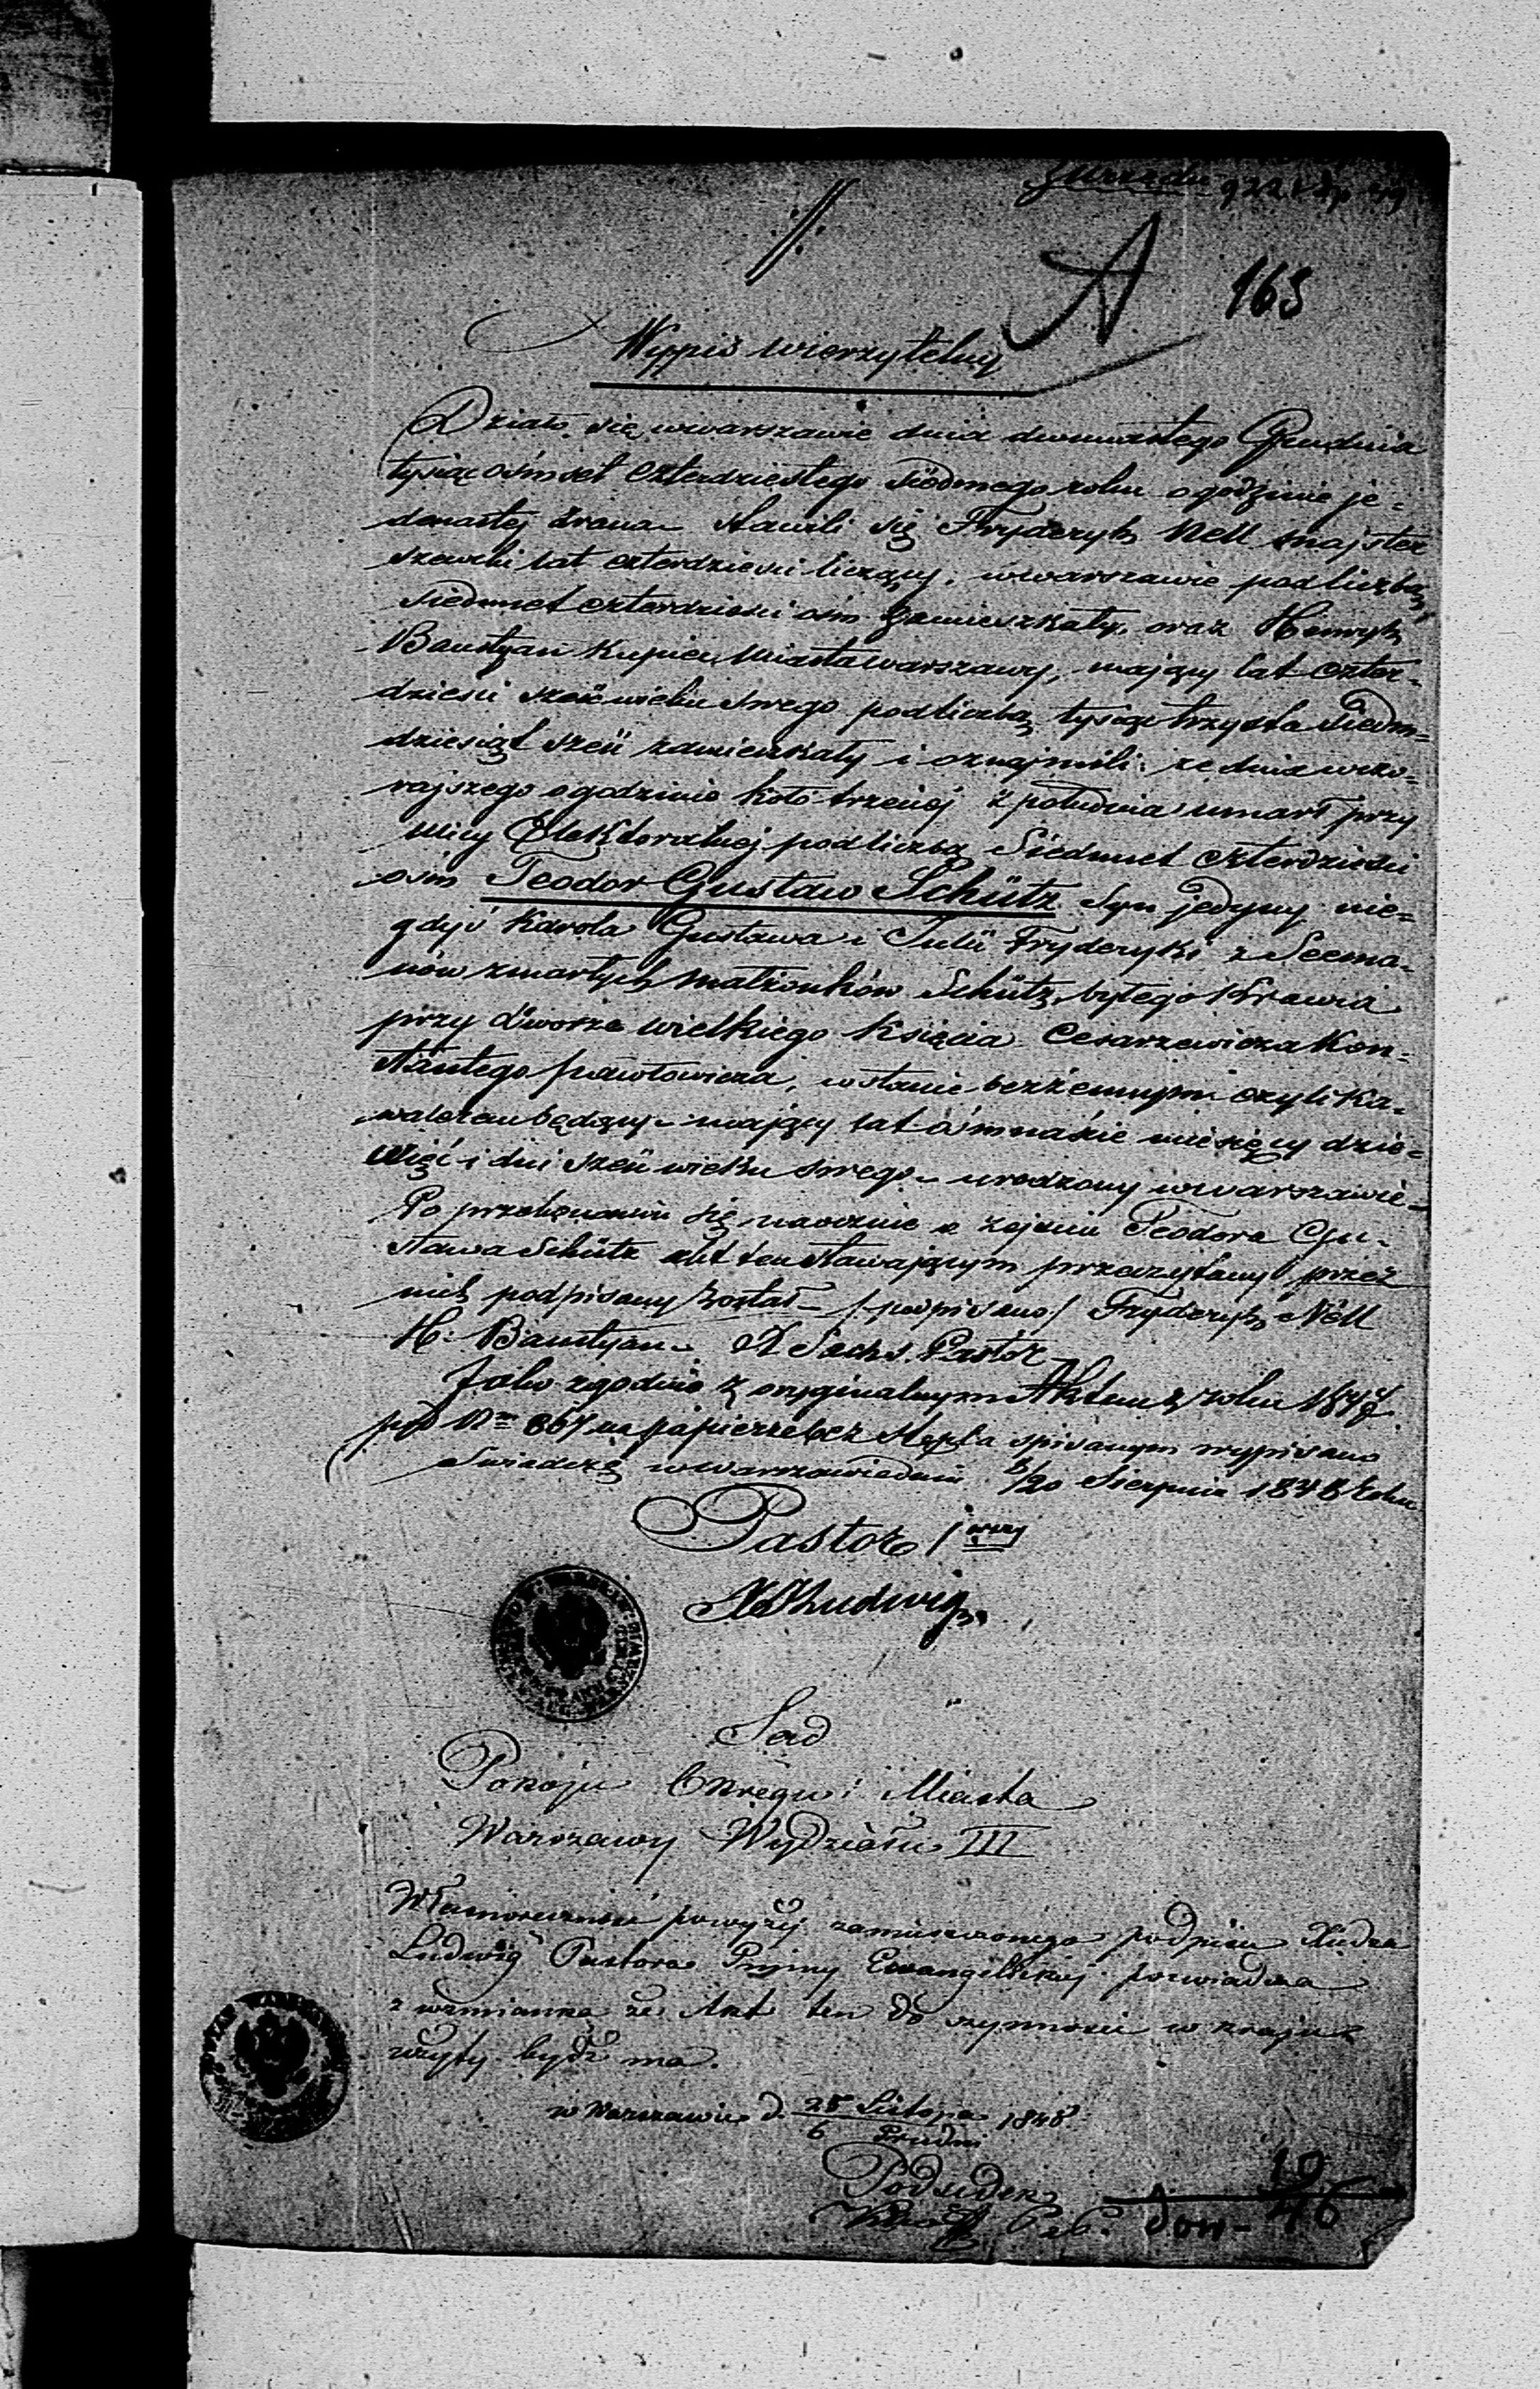 A 165
Wypis wierzytelny
Działo się w warszawie dnia dwunastego Grudnia
tysiąc ośmset czterdziestego siódmego roku o godzinie je-
denastej zrana stawili się Fryderyk Nell majster
szewcki lat czterdzieści liczący, w warszawie pod liczbą
siedmset czterdzieści ośm zamieszkały, oraz Henryk
Baustyan Kupiec Miasta warszawy, mający lat czter-
dzieści sześć wieku swego pod liczbą tysiąc trzysta siedm-
dziesiąt sześć zamieszkały i oznajmili że dnia wczo-
rajszego o godzinie koło trzeciej z południa umarł przy
ulicy Elektoralnej pod liczbą Siedmset czterdzieści
ośm Teodor Gustaw Schütz Syn jedyny nie-
gdyś Karola Gustawa i Julii Fryderyki z Seema-
nów zmarłych małżonków Schütz, byłego Krawca
przy dworze wielkiego Księcia Cesarzewicza Kon-
stantego pawłowicza, w stanie bezżennym czyli ka-
walerem będący mający lat ośmnaście miesięcy dzie-
więć i dni sześć wieku swego urodzony w warszawie
Po przekonaniu się naocznie o zejściu Teodora Gu-
stawa Schütz akt ten stawającym przeczytany przez
nich podpisany został - /podpisano/ Fryderyk Nell
H: Baustyan Pastor
Jako zgodnie z oryginalnym Aktem z roku 1847
pod Nem 867 na papierze bez stępla spisanym wypisano
Świadczę w warszawie dnia 8/20 Sierpnia 1848 roku
Pastor 1wszy
Ludwig
Sąd
Pokoju Okręgu i Miasta
Warszawy Wydziału III
Własnoręczność powyżej zamieszczonego podpisu Xiędza
Ludwig Pastora Gminy Ewangelickiej poświadcza
z wzmianką że Akt ten do czynności w kraju
użyty bydź ma.
w Warszawie d. 25 Listopa 1848
6 Grudni
Podsędek
19
46